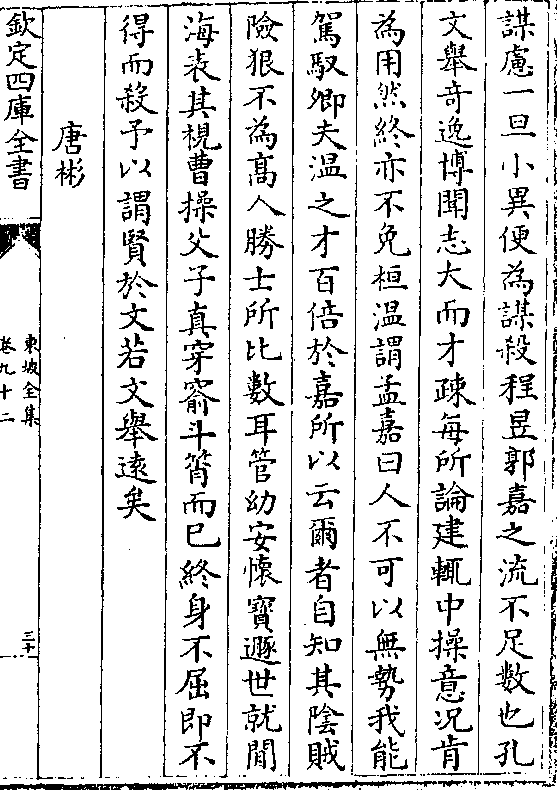 謀慮一旦小異便為謀殺程昱郭嘉之流不足數也孔
文舉奇逸博聞志大而才疎每所論建輒中操意况肯
為用然終亦不免桓溫謂孟嘉曰人不可以無勢我能
駕馭卿夫溫之才百倍於嘉所以云爾者自知其陰賊
險狠不為高人勝士所比數耳管幼安懷寶遯世就閒
海表其視曹操父子真穿窬斗筲而已終身不屈即不
得而殺予以謂賢於文若文舉遠矣
唐彬
欽定四庫全書
東坡全集
卷九十二
三十